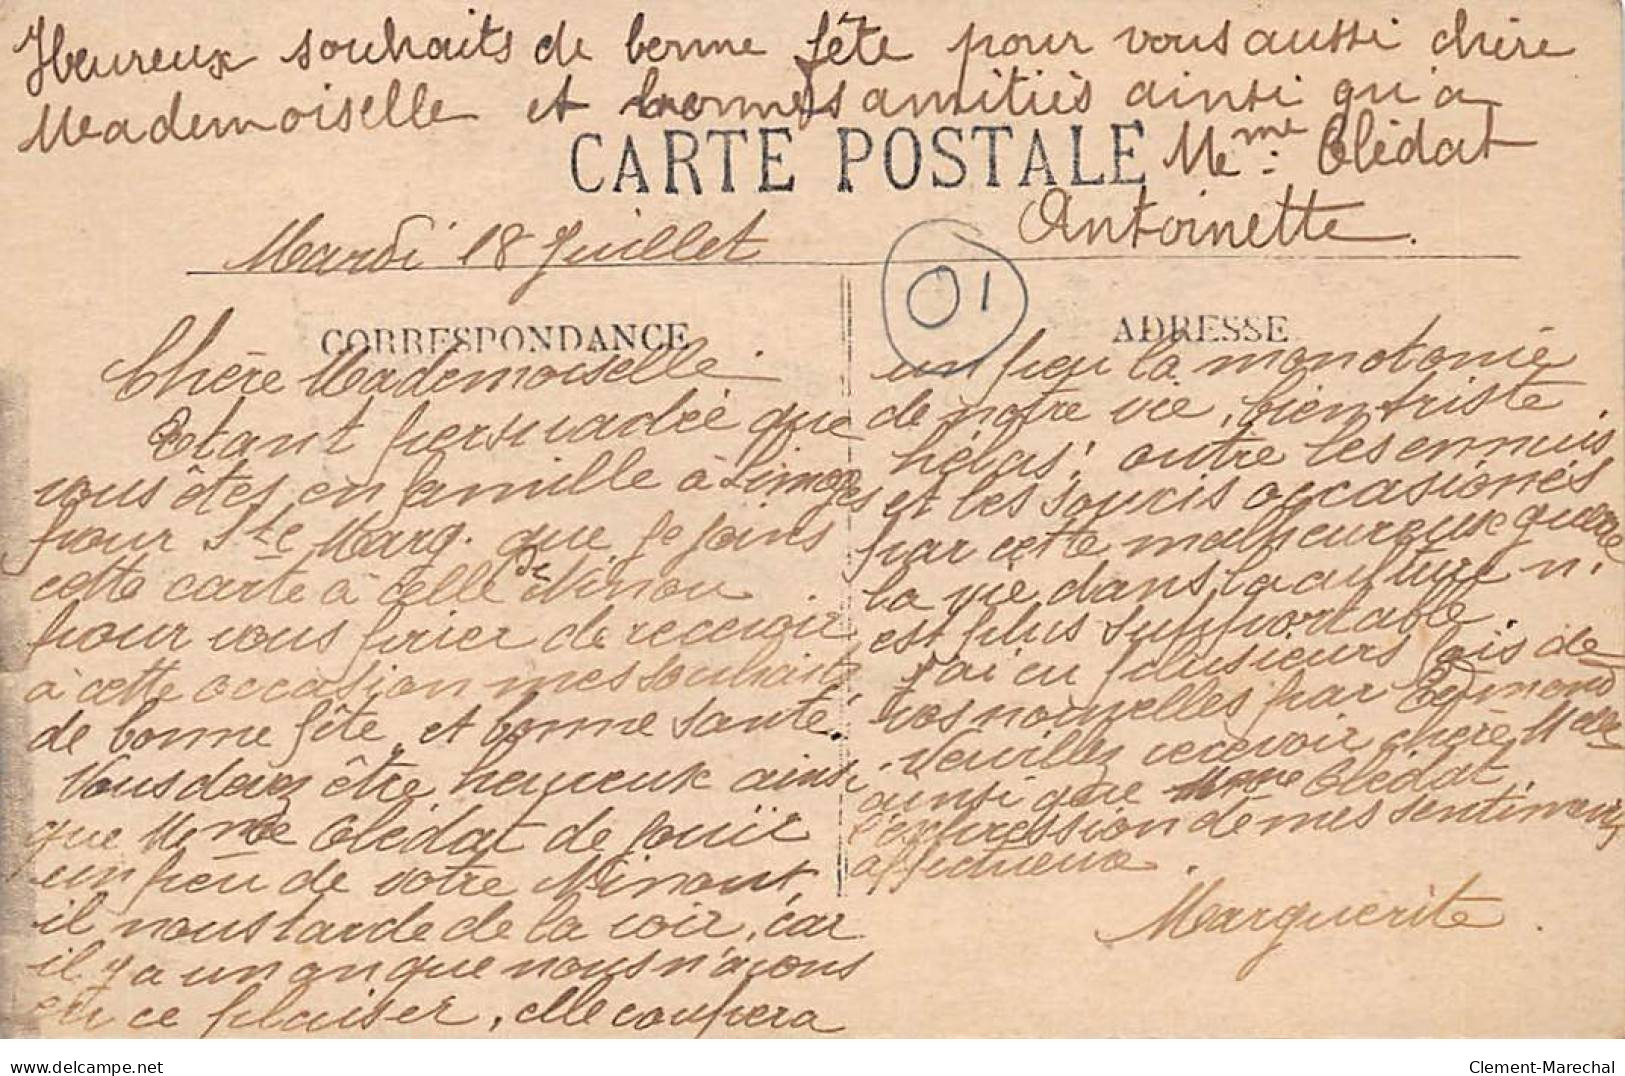 Heureux souhaits de bonne fête pour vous aussi chère
Mademoiselle et bonnes amitiés ainsi qu'à
Mme Clédat
Antoinette.
CARTE POSTALE
Mardi 18 Juillet
01
CORRESPONDANCE
Chère Mademoiselle.
Etant persuadée que
vous êtes en famille à Limoges
pour Ste Marg. que je joins
cette carte à celle de Ninou
pour vous prier de recevoir
à cette occasion mes souhaits
de bonne fête et bonne santé.
Vous devez être heureux ainsi
que Mme Clédat de jouïr
un peu de votre Ninou,
il nous tarde de la voir, car
il y a un an que nous n'avons
eu ce plaiser, elle coupera
ADRESSE
un peu la monotonie
de notre vie, bien triste,
hélas! outre les ennuis
et les soucis occasionés
par cette malheureuse guerre
la vie dans la culture n'
est plus supportable.
J'ai eu plusieurs fois de
vos nouvelles par Edmond
Veuillez recevoir chère Melle
ainsi que Mme Clédat,
l'expression de mes sentiments
affectueux.
Marguerite.
www.delcampe.net
Clement-Marechal